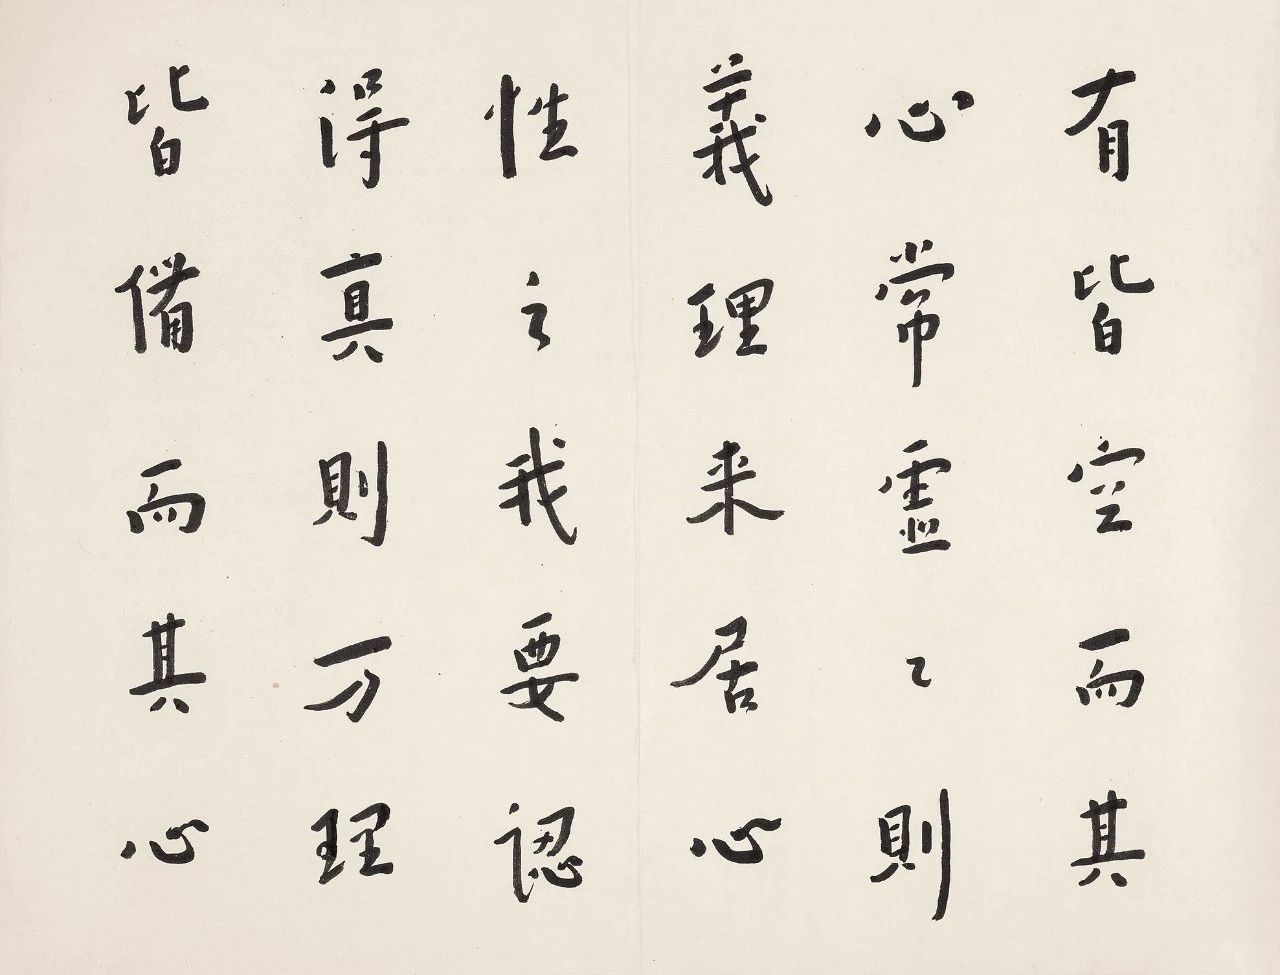 有皆空而其
心常靈〻則
義理来居心
性之我要認
得真則万理
皆備而其心